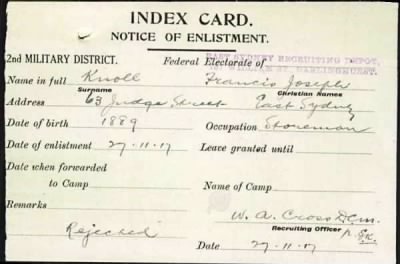 INDEX CARD.
NOTICE OF ENLISTMENT.
EAST SYDNEY RECRUITING DEPOT,
2nd MILITARY DISTRICT. Federal Electorate of
ST. DARLINGHURST.
Name in full Knoll Francis Joseph
Surname Christian Names
Address 63 Judge Street East Sydney
Date of birth 1889 Occupation Storeman
Date of enlistment 27-11-17 Leave granted until
Date when forwarded
to Camp Name of Camp
Remarks W. A. Cross
Recruiting Officer
Rejected
Date 27-11-17